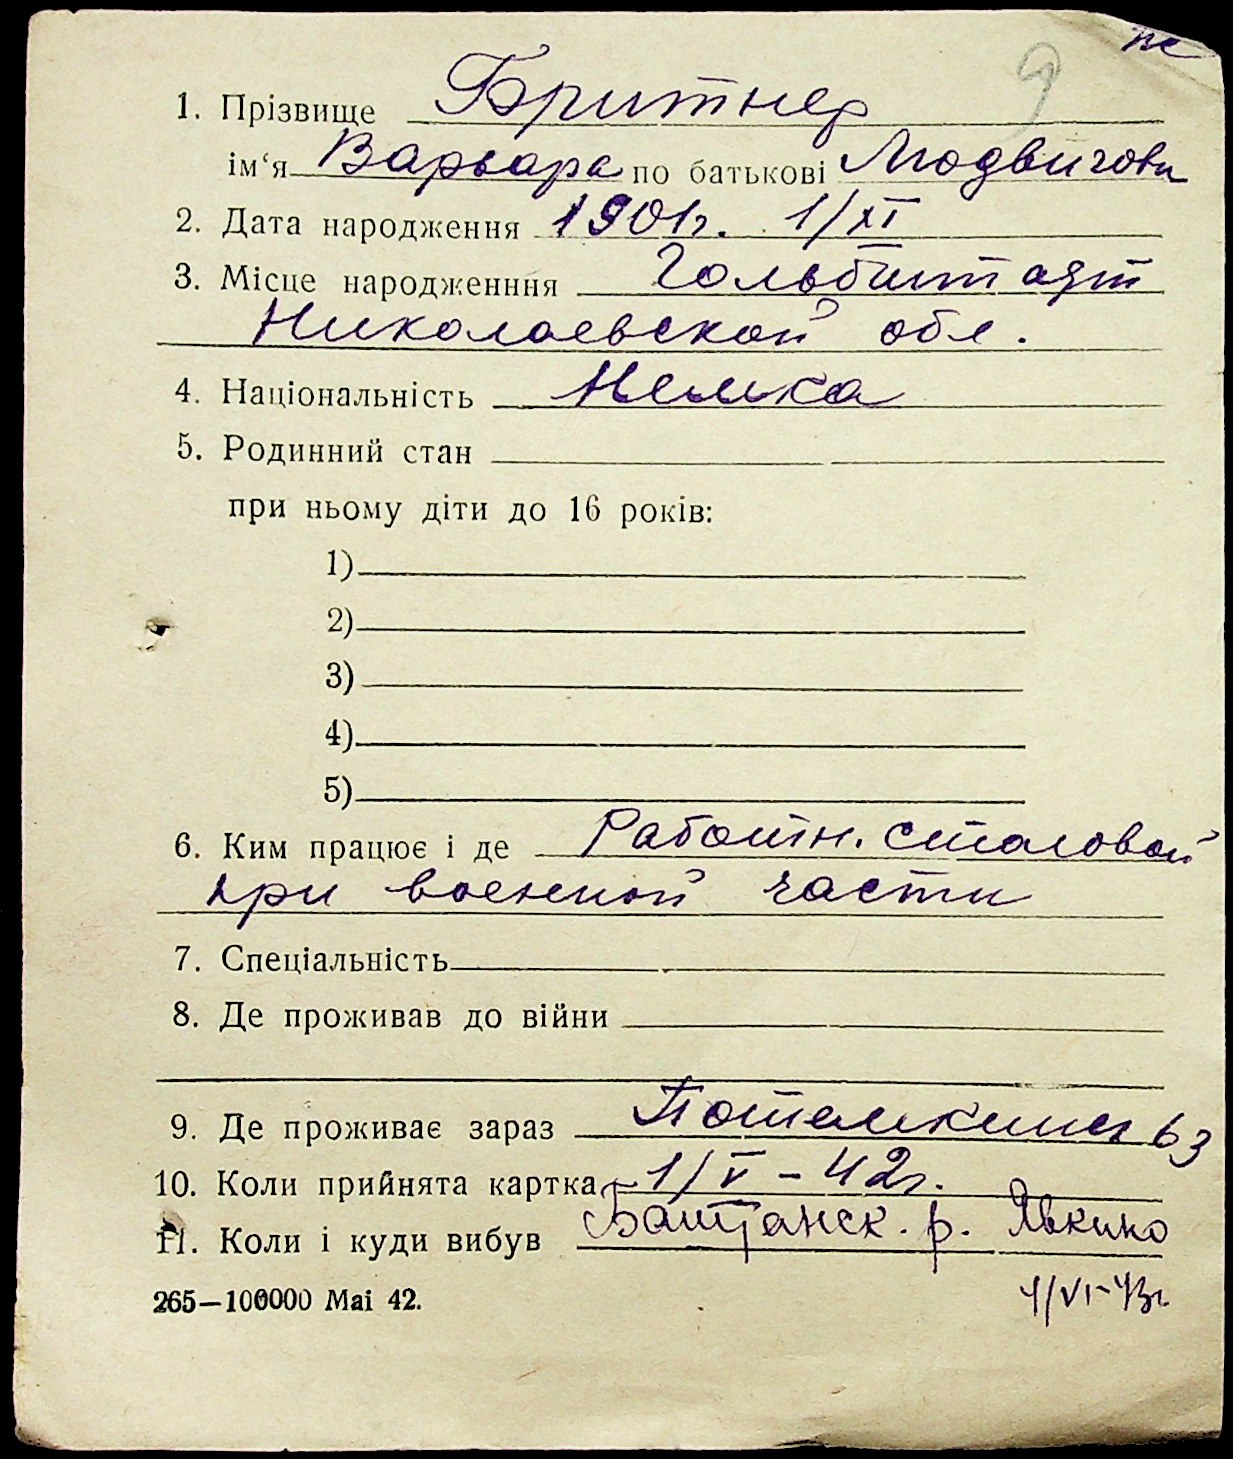 пс
9
1. Прізвище Бритнер
ім‘я Варвара по батькові Людвигови
2. Дата народження 1901г. 1/XI
3. Місце народженння Гольбштадт
Николаевской обл.
4. Національність Немка
5. Родинний стан
при ньому діти до 16 років:
1)
2)
3)
4)
5)
6. Ким працює і де Работн. столовой
при военной части
7. Спеціальність
8. Де проживав до війни
9. Де проживає зараз Потемкинск 63
10. Коли прийнята картка 1/V-42г.
11. Коли і куди вибув Баштанск. р. Явкино
265—100000 Mai 42. 4/VI-43г.